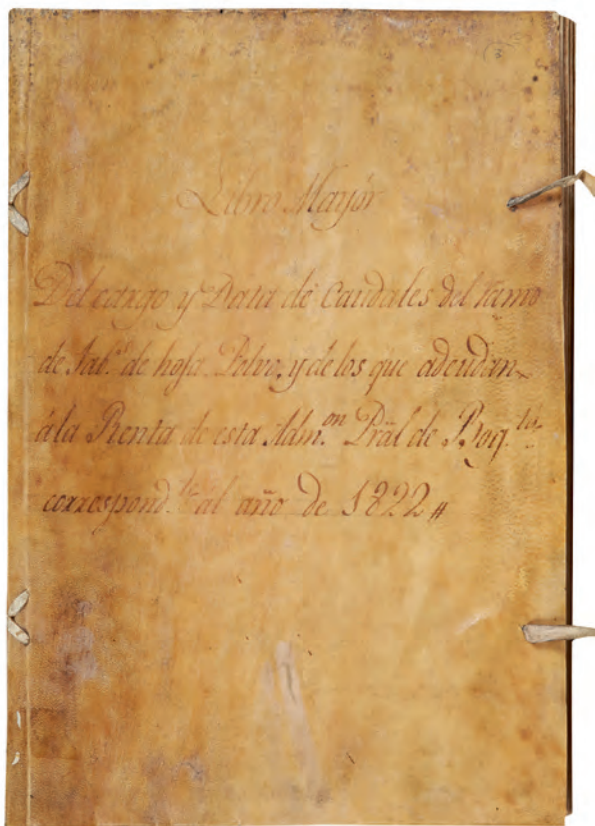 Libro Mayór
Del cargo y Data de Caudales del ramo
de Tab.s de hoja Polvo, y de los que adeudan
á la Renta de esta Adm.on Prãl de Bog.ta
correspond.te al año de 1822 #